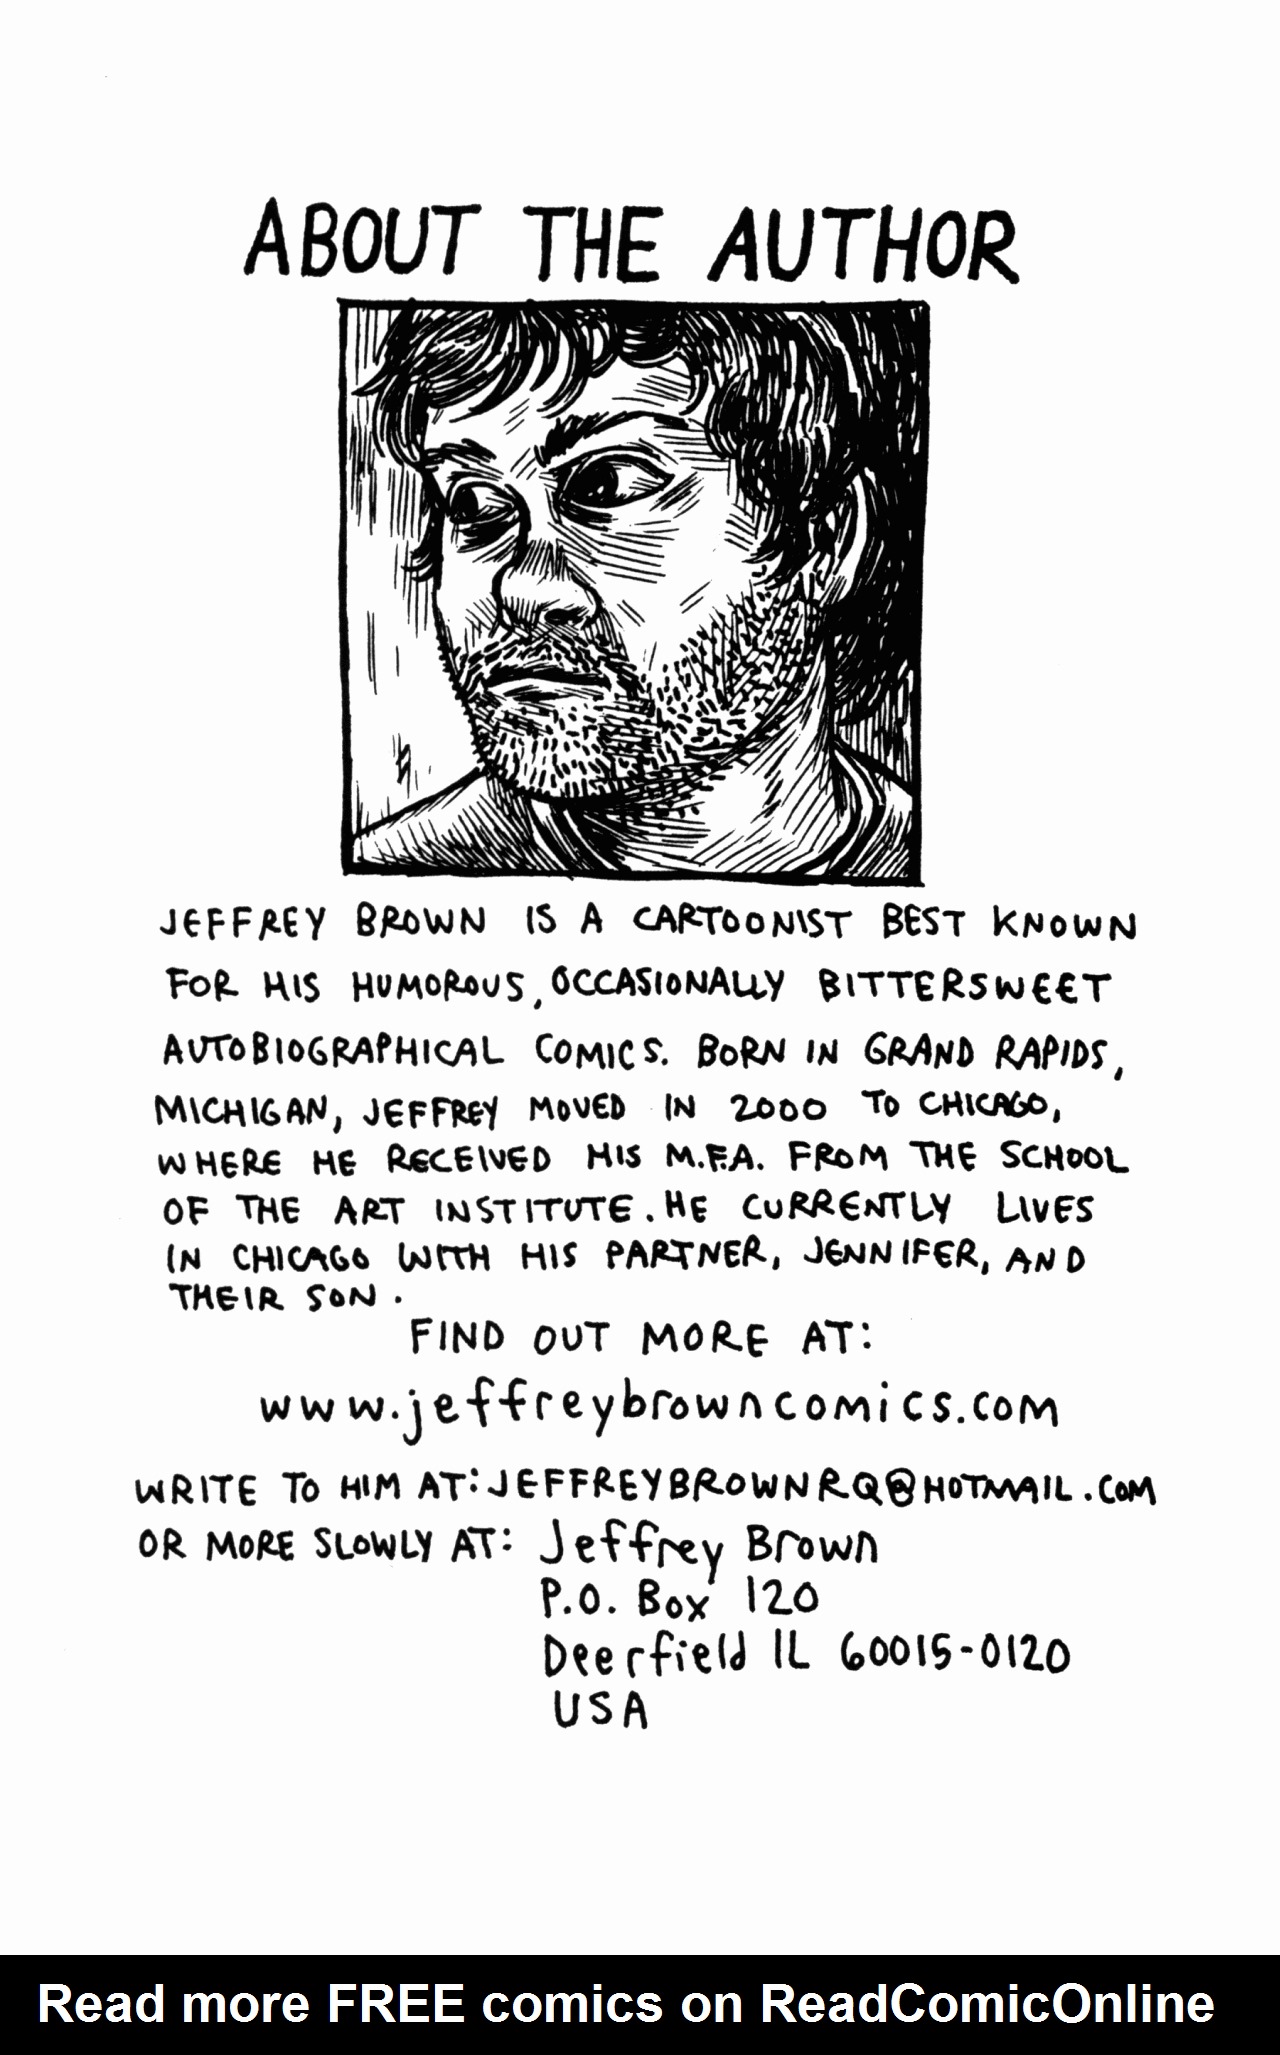 ABOUT THE AUTHOR
JEFFREY BROWN IS A CARTOONIST BEST KNOWN
FOR HIS HUMOROUS, OCCASIONALLY BITTERSWEET
AUTOBIOGRAPHICAL COMICS. BORN IN GRAND RAPIDS,
MICHIGAN, JEFFREY MOVED IN 2000 TO CHICAGO,
WHERE HE RECEIVED HIS M.F.A. FROM THE SCHOOL
OF THE ART INSTITUTE. HE CURRENTLY LIVES
IN CHICAGO WITH HIS PARTNER, JENNIFER, AND
THEIR SON.
FIND OUT MORE AT:
www.jeffreybrowncomics.com
WRITE TO HIM AT: JEFFREYBROWNRQ@HOTMAIL.COM
OR MORE SLOWLY AT: Jeffrey Brown
P.O. Box 120
Deerfield IL 60015-0120
USA
Read more FREE comics on ReadComicOnline